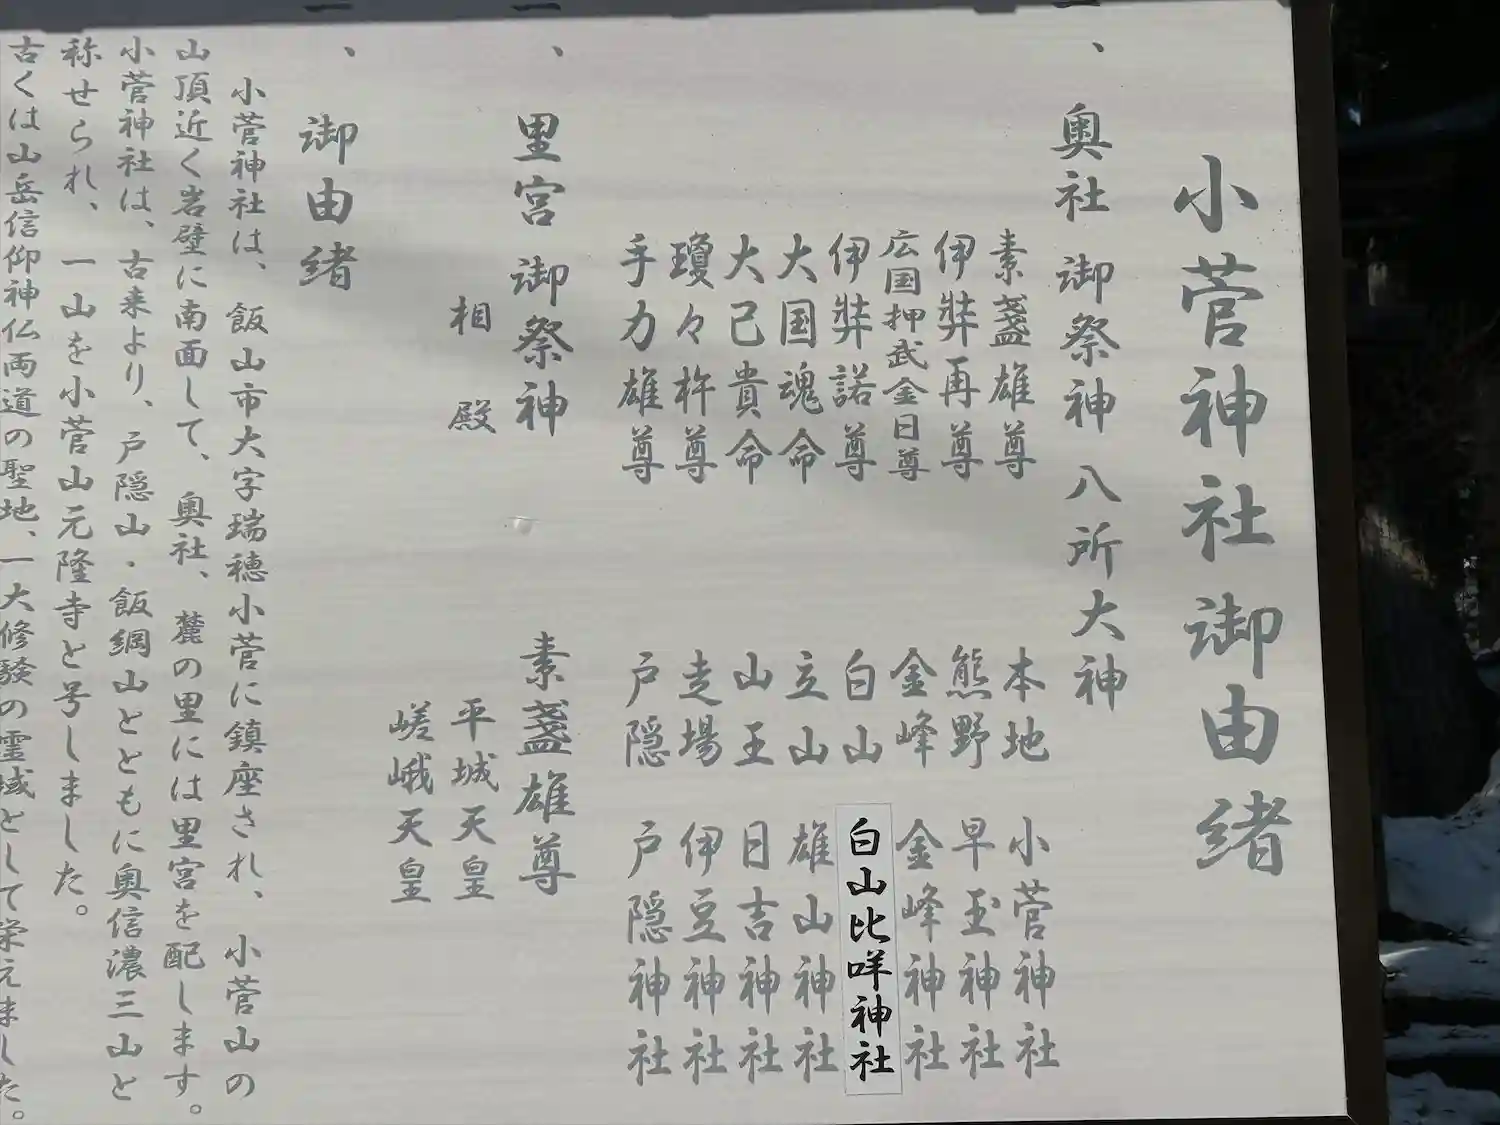 小菅神社御由緒
一、奥社 御祭神 八所大神
素盞雄尊 本地 小菅神社
伊弉再尊 熊野 早玉神社
広国押武金日尊 金峰 金峰神社
伊弉諾尊 白山 白山比咩神社
大国魂命 立山 雄山神社
大己貴命 山王 日吉神社
瓊々杵尊 走場 伊豆神社
手力雄尊 戸隠 戸隠神社
一、里宮 御祭神 素盞雄尊
相殿 平城天皇
嵯峨天皇
一、御由緒
小菅神社は、飯山市大字瑞穂小菅に鎮座され、小菅山の
山頂近く岩壁に南面して、奥社、麓の里には里宮を配します。
小菅神社は、古来より、戸隠山・飯綱山とともに奥信濃三山と
称せられ、一山を小菅山元隆寺と号しました。
古くは山岳信仰神仏両道の聖地、一大修験の霊域として栄えました。